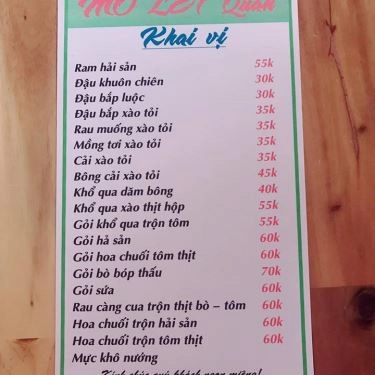 MỎ LẾT Quán
Khai vị
Ram hải sản 55k
Đậu khuôn chiên 30k
Đậu bắp luộc 30k
Đậu bắp xào tỏi 35k
Rau muống xào tỏi 35k
Mồng tơi xào tỏi 35k
Cải xào tỏi 35k
Bông cải xào tỏi 45k
Khổ qua dăm bông 40k
Khổ qua xào thịt hộp 55k
Gỏi khổ qua trộn tôm 55k
Gỏi hả sản 60k
Gỏi hoa chuối tôm thịt 60k
Gỏi bò bóp thấu 70k
Gỏi sứa 60k
Rau càng cua trộn thịt bò – tôm 60k
Hoa chuối trộn hải sản 60k
Hoa chuối trộn tôm thịt 60k
Mực khô nướng
Kính chúc quý khách ngon miệng!